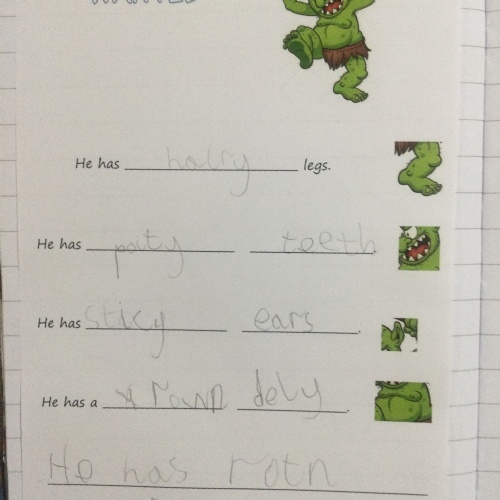 He has hairy legs.
He has poity teeth.
He has sticy ears.
He has a rown dely.
He has rotn